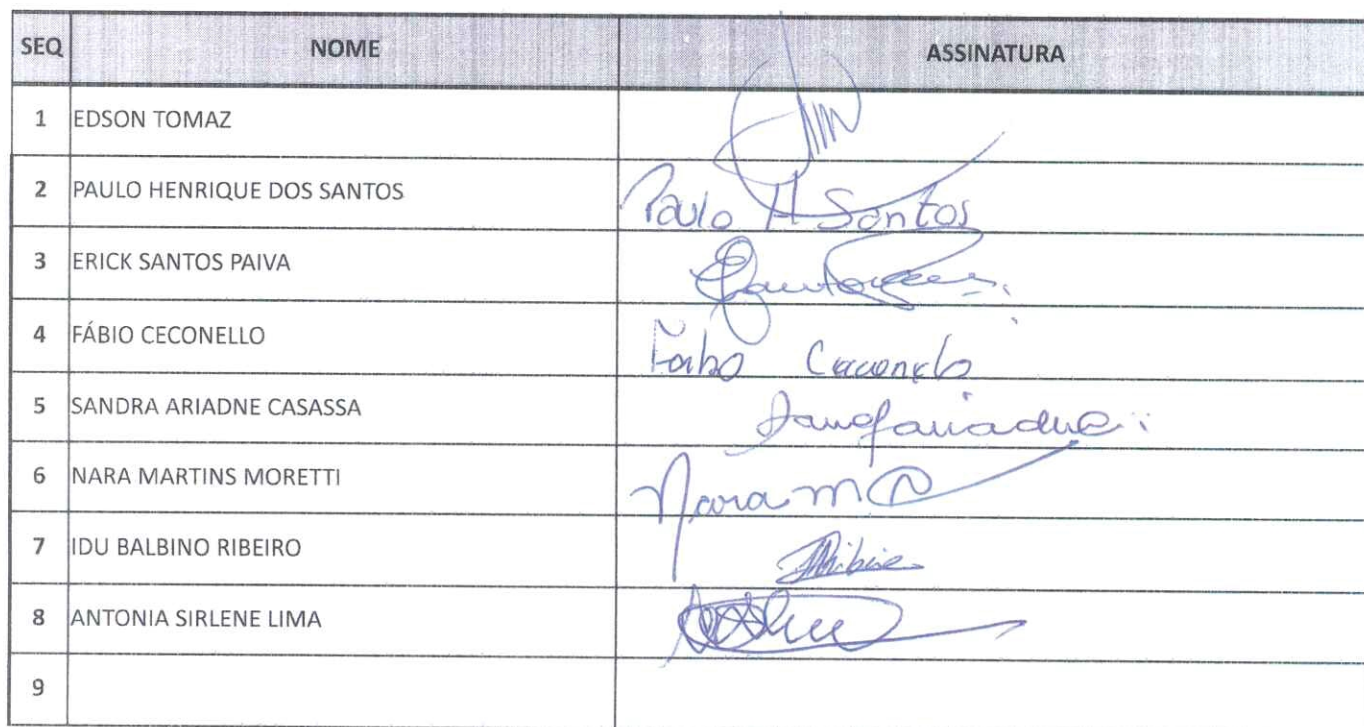 SEQ NOME ASSINATURA
1 EDSON TOMAZ
2 PAULO HENRIQUE DOS SANTOS Paulo H Santos
3 ERICK SANTOS PAIVA
4 FÁBIO CECONELLO
5 SANDRA ARIADNE CASASSA
6 NARA MARTINS MORETTI Nara M
7 IDU BALBINO RIBEIRO
8 ANTONIA SIRLENE LIMA
9